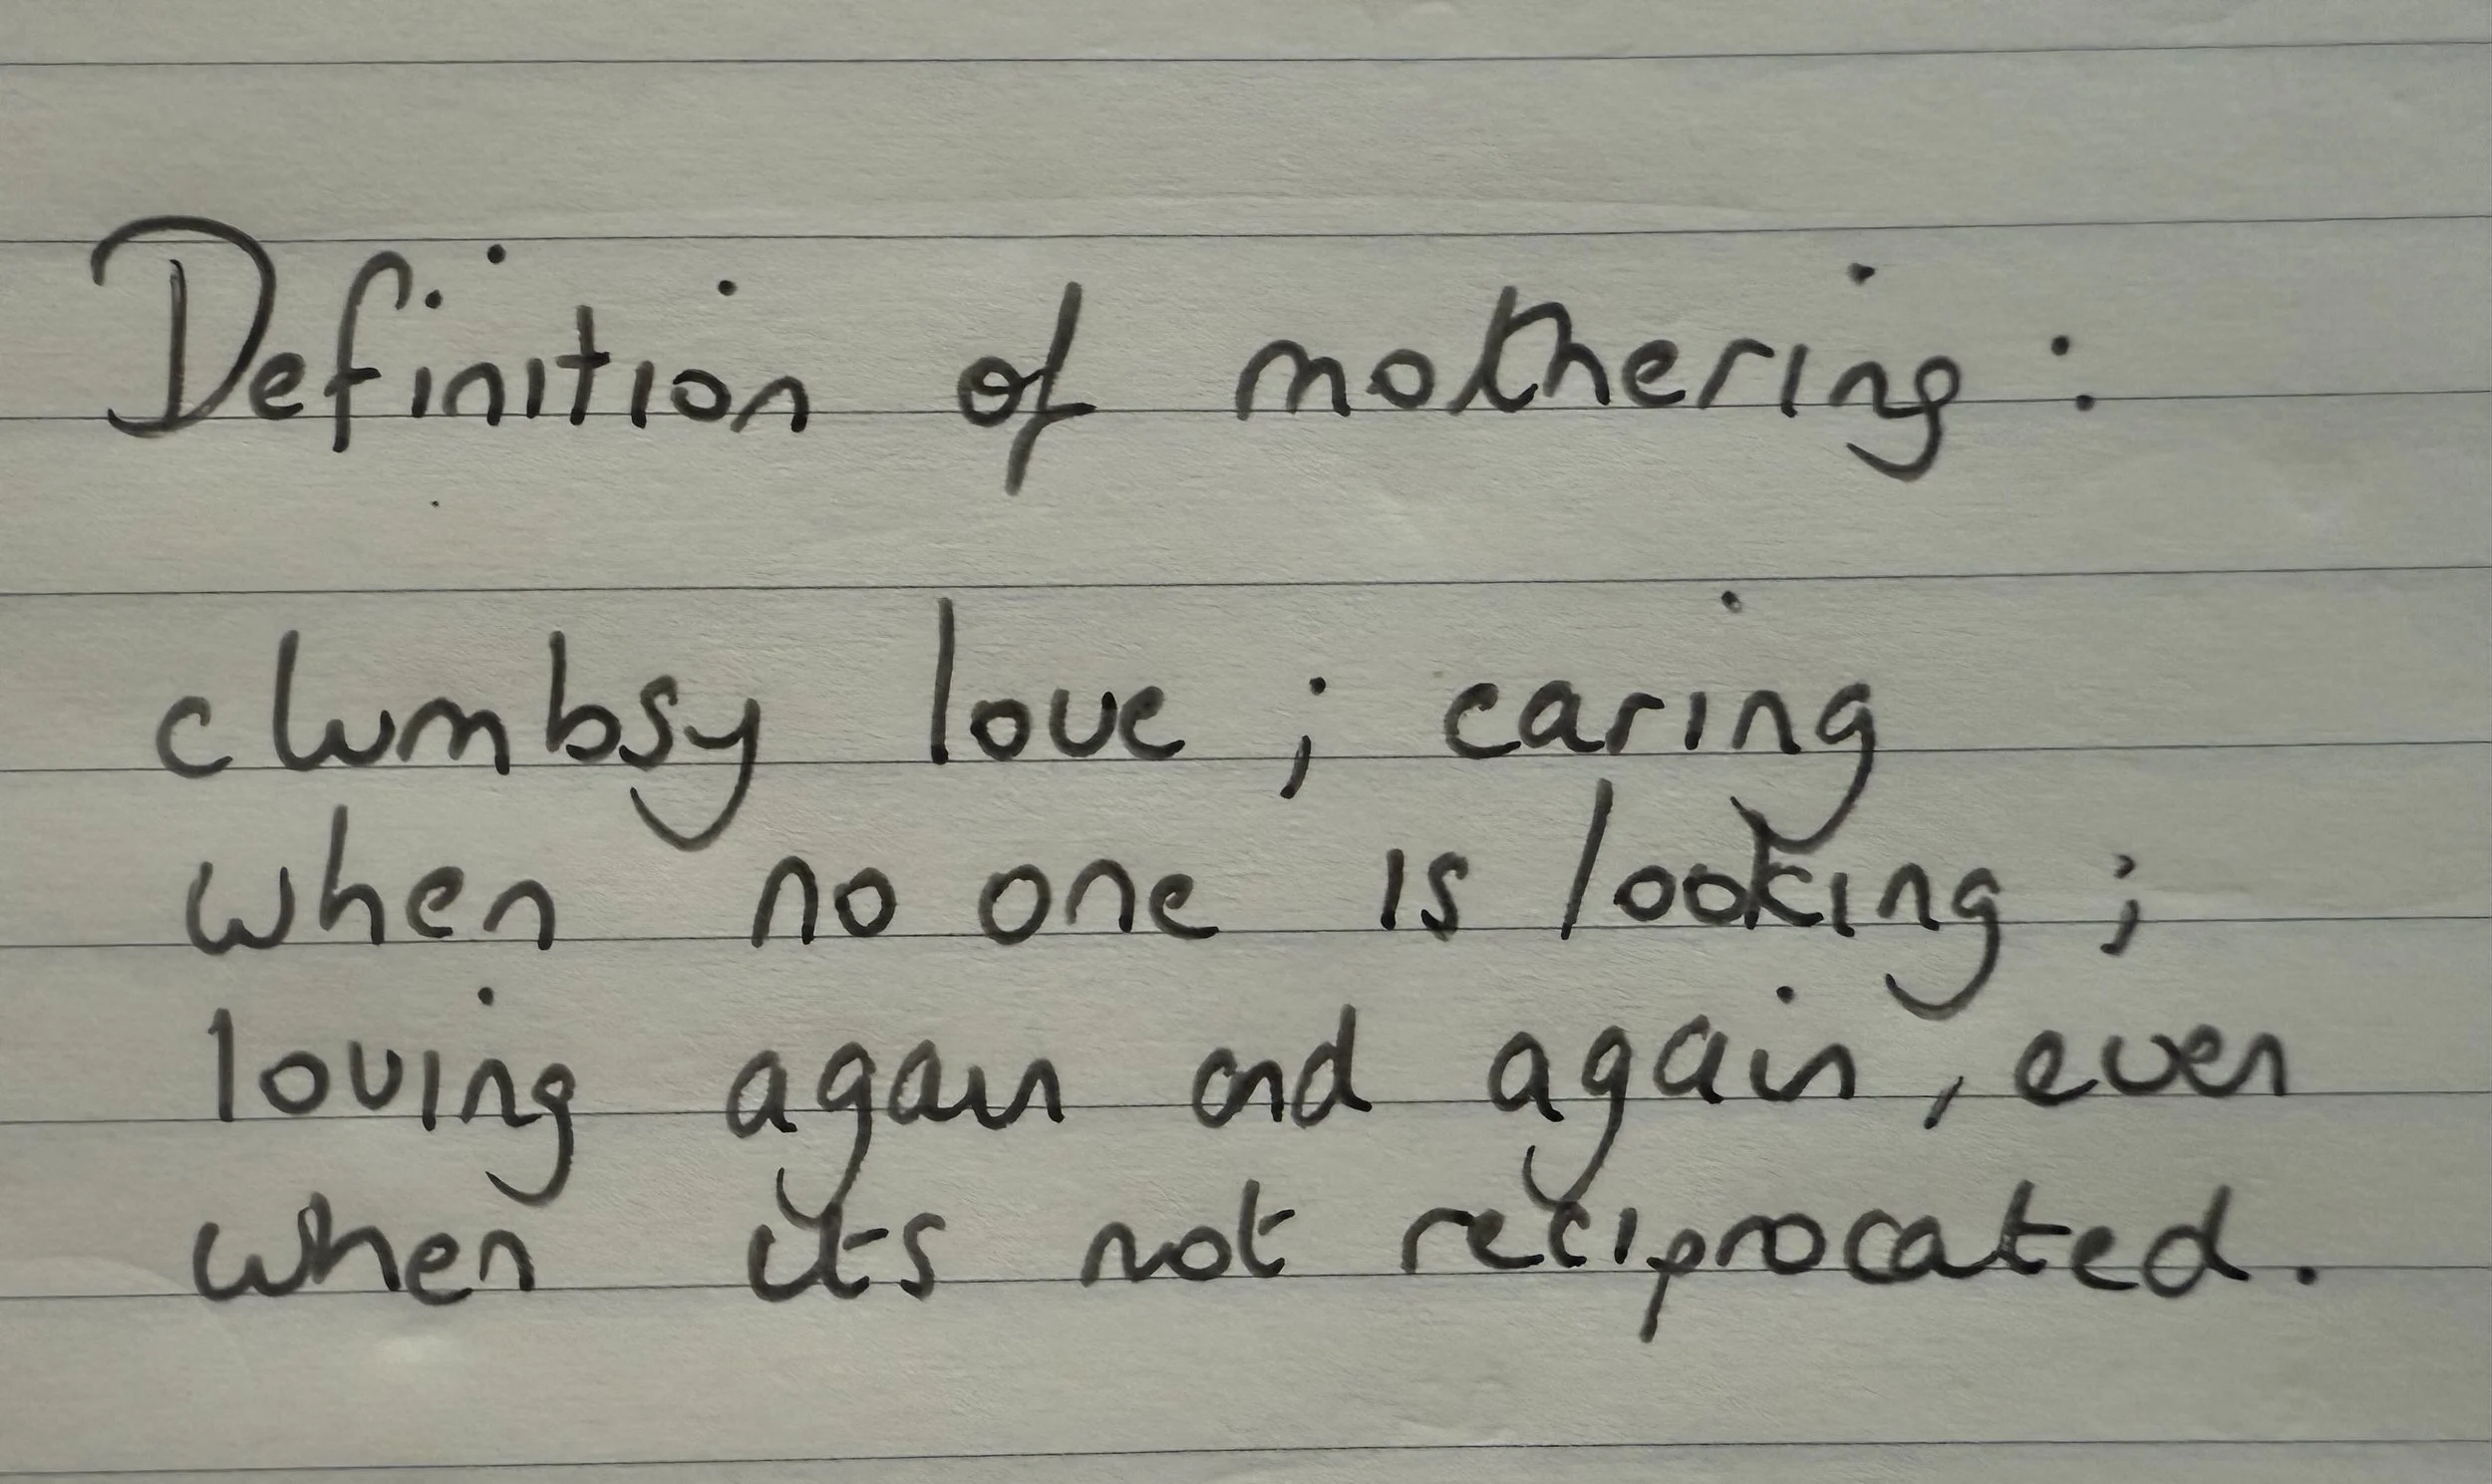 Definition of mothering:
clumbsy love; caring
when no one is looking;
loving again and again, even
when its not reciprocated.